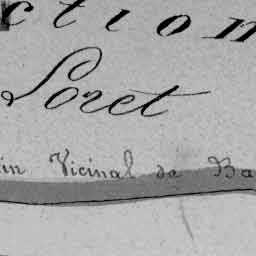 ction
Loret
in Vicinal de Ba